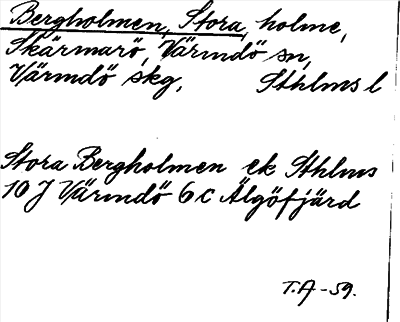 Bergholmen, Stora, holme,
Skärmarö, Värmdö sn,
Värmdö skg, Sthlms l
Stora Bergholmen ek Sthlms
10 J Värmdö 6 c Älgöfjärd
T.A -59.